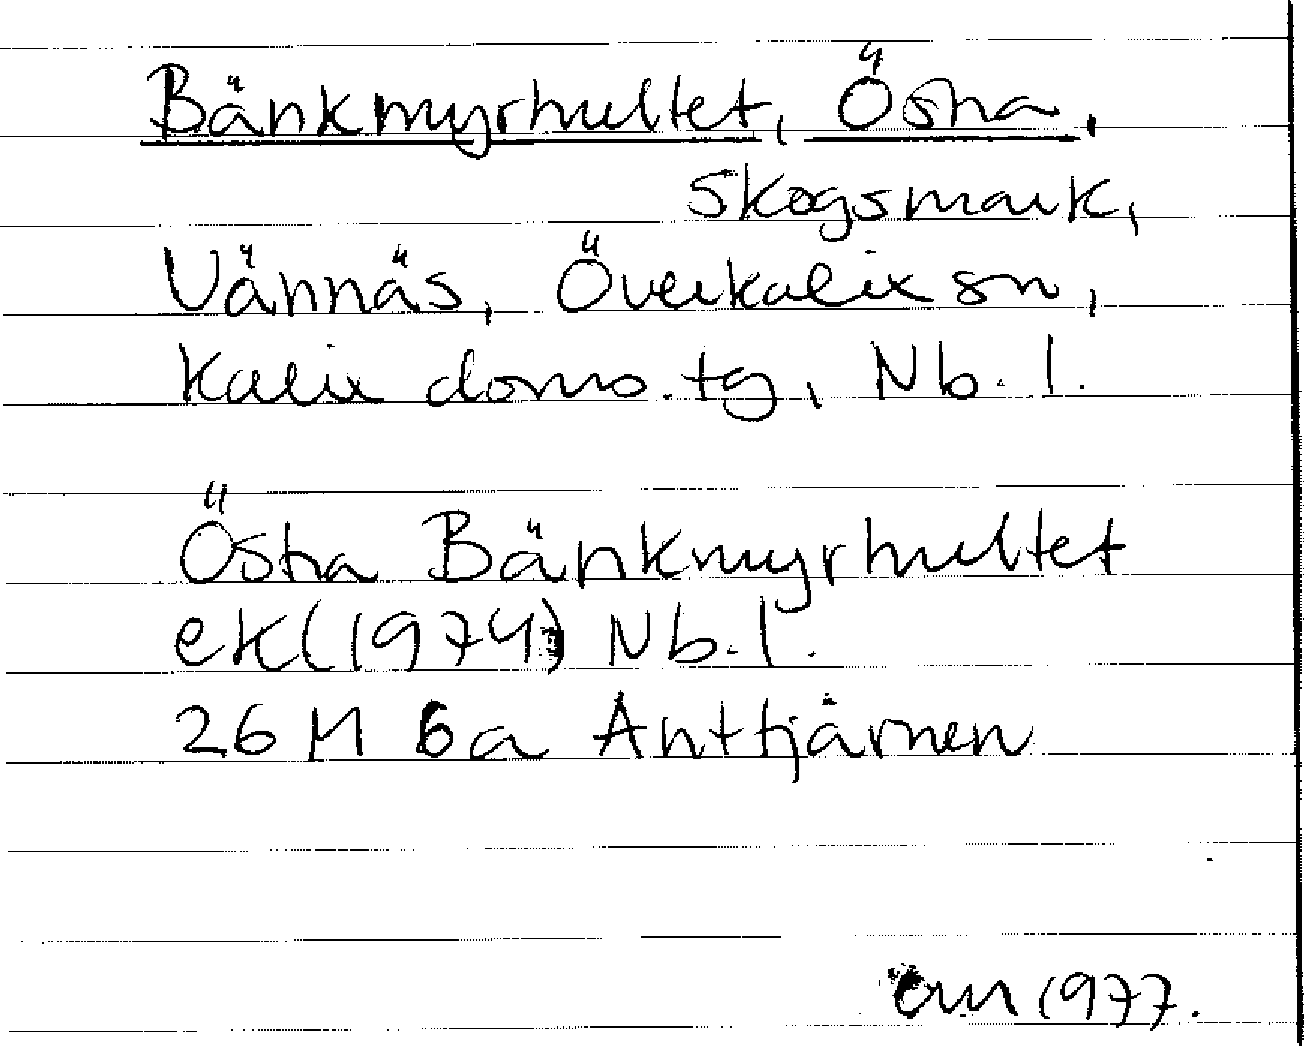 Bänkmyrhultet, Östra,
Skogsmark,
Vännäs, Överkalix sn,
Kalix doms.tg, Nb.l.
Östra Bänkmyrhultet
ek(1974) Nb.l.
26 M 6a Anttjärnen
1977.